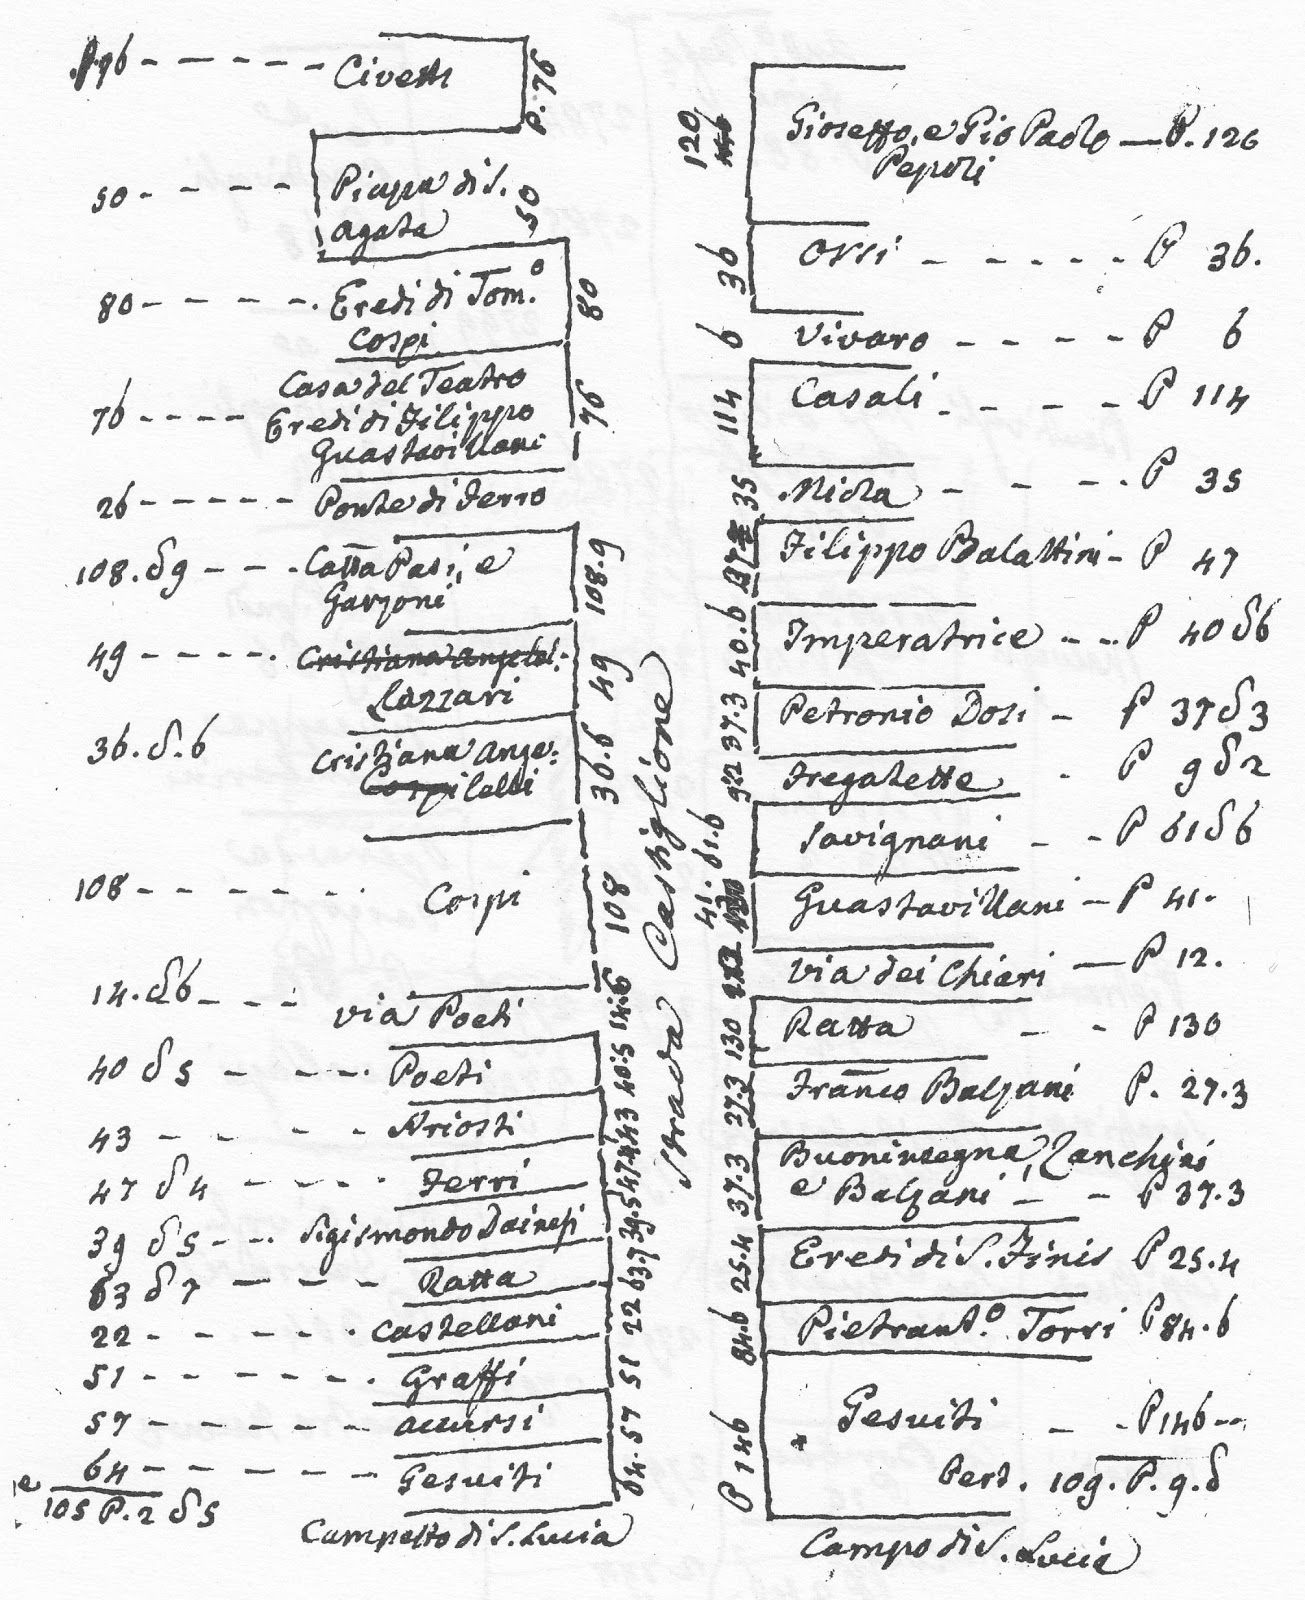 P. 76 - - - - - - Civetti P. 76
50 - - - - Piazza di S. 50
Agata
80 - - - - - Eredi di Tom.o 80
Cospi
Casa del Teatro
76 - - - - Eredi di Filippo 76
Guastavillani
26 - - - - - Ponte di Ferro
108. δ 9 - - - Catta Pasi, e 108.9
Garzoni
49 - - - - - Cristiana Angelel: 49
Lazzari
36. δ. 6 Cristiana Ange: 36.6
Cospi lelli
108 - - - - - - Cospi 108
14. δ 6 - - - via Poeti 14.6
40 δ 5 - - - - Poeti 40.5
43 - - - - - Ariosti 43
47 δ 4 - - - - - Ferri 47.4
39 δ 5 - - - Sigismondo Dainesi 39.5
63 δ 7 - - - - Ratta 63.7
22 - - - - - - Castellani 22
51 - - - - - - Graffi 51
57 - - - - - - Accursi 57
64 - - - - - - Gesuiti 64.
e
105 P. 2 δ 5
Campetto di S. Lucia
Strada Castiglione
120 Gioseffo, e Gio Paolo — P. 120
Pepoli
36 Orsi - - - - - P 36.
6 Vivaro - - - - P 6
114 Casali - - - - P 114
35 Miola - - - - P 35
Filippo Balattini - P 47
40.6 Imperatrice - - - P 40 δ 6
37.3 Petronio Dosi - P 37 δ 3
9.2 Fregatette - P 9 δ 2
61.6 Savignani - - P 61 δ 6
41. Guastavillani - P 41.
via dei Chiari — P 12.
130 Ratta - - P 130
27.3 Franco Balzani P. 27.3
37.3 Buoninsegna, Zanchini
e Balzani - - P 37.3
25.4 Eredi di S. Finis P 25.4
84.6 Pietrant.o Torri P 84.6
P 146 Gesuiti - - P 146 --
Pert. 109. P. 9. δ
Campo di S. Lucia